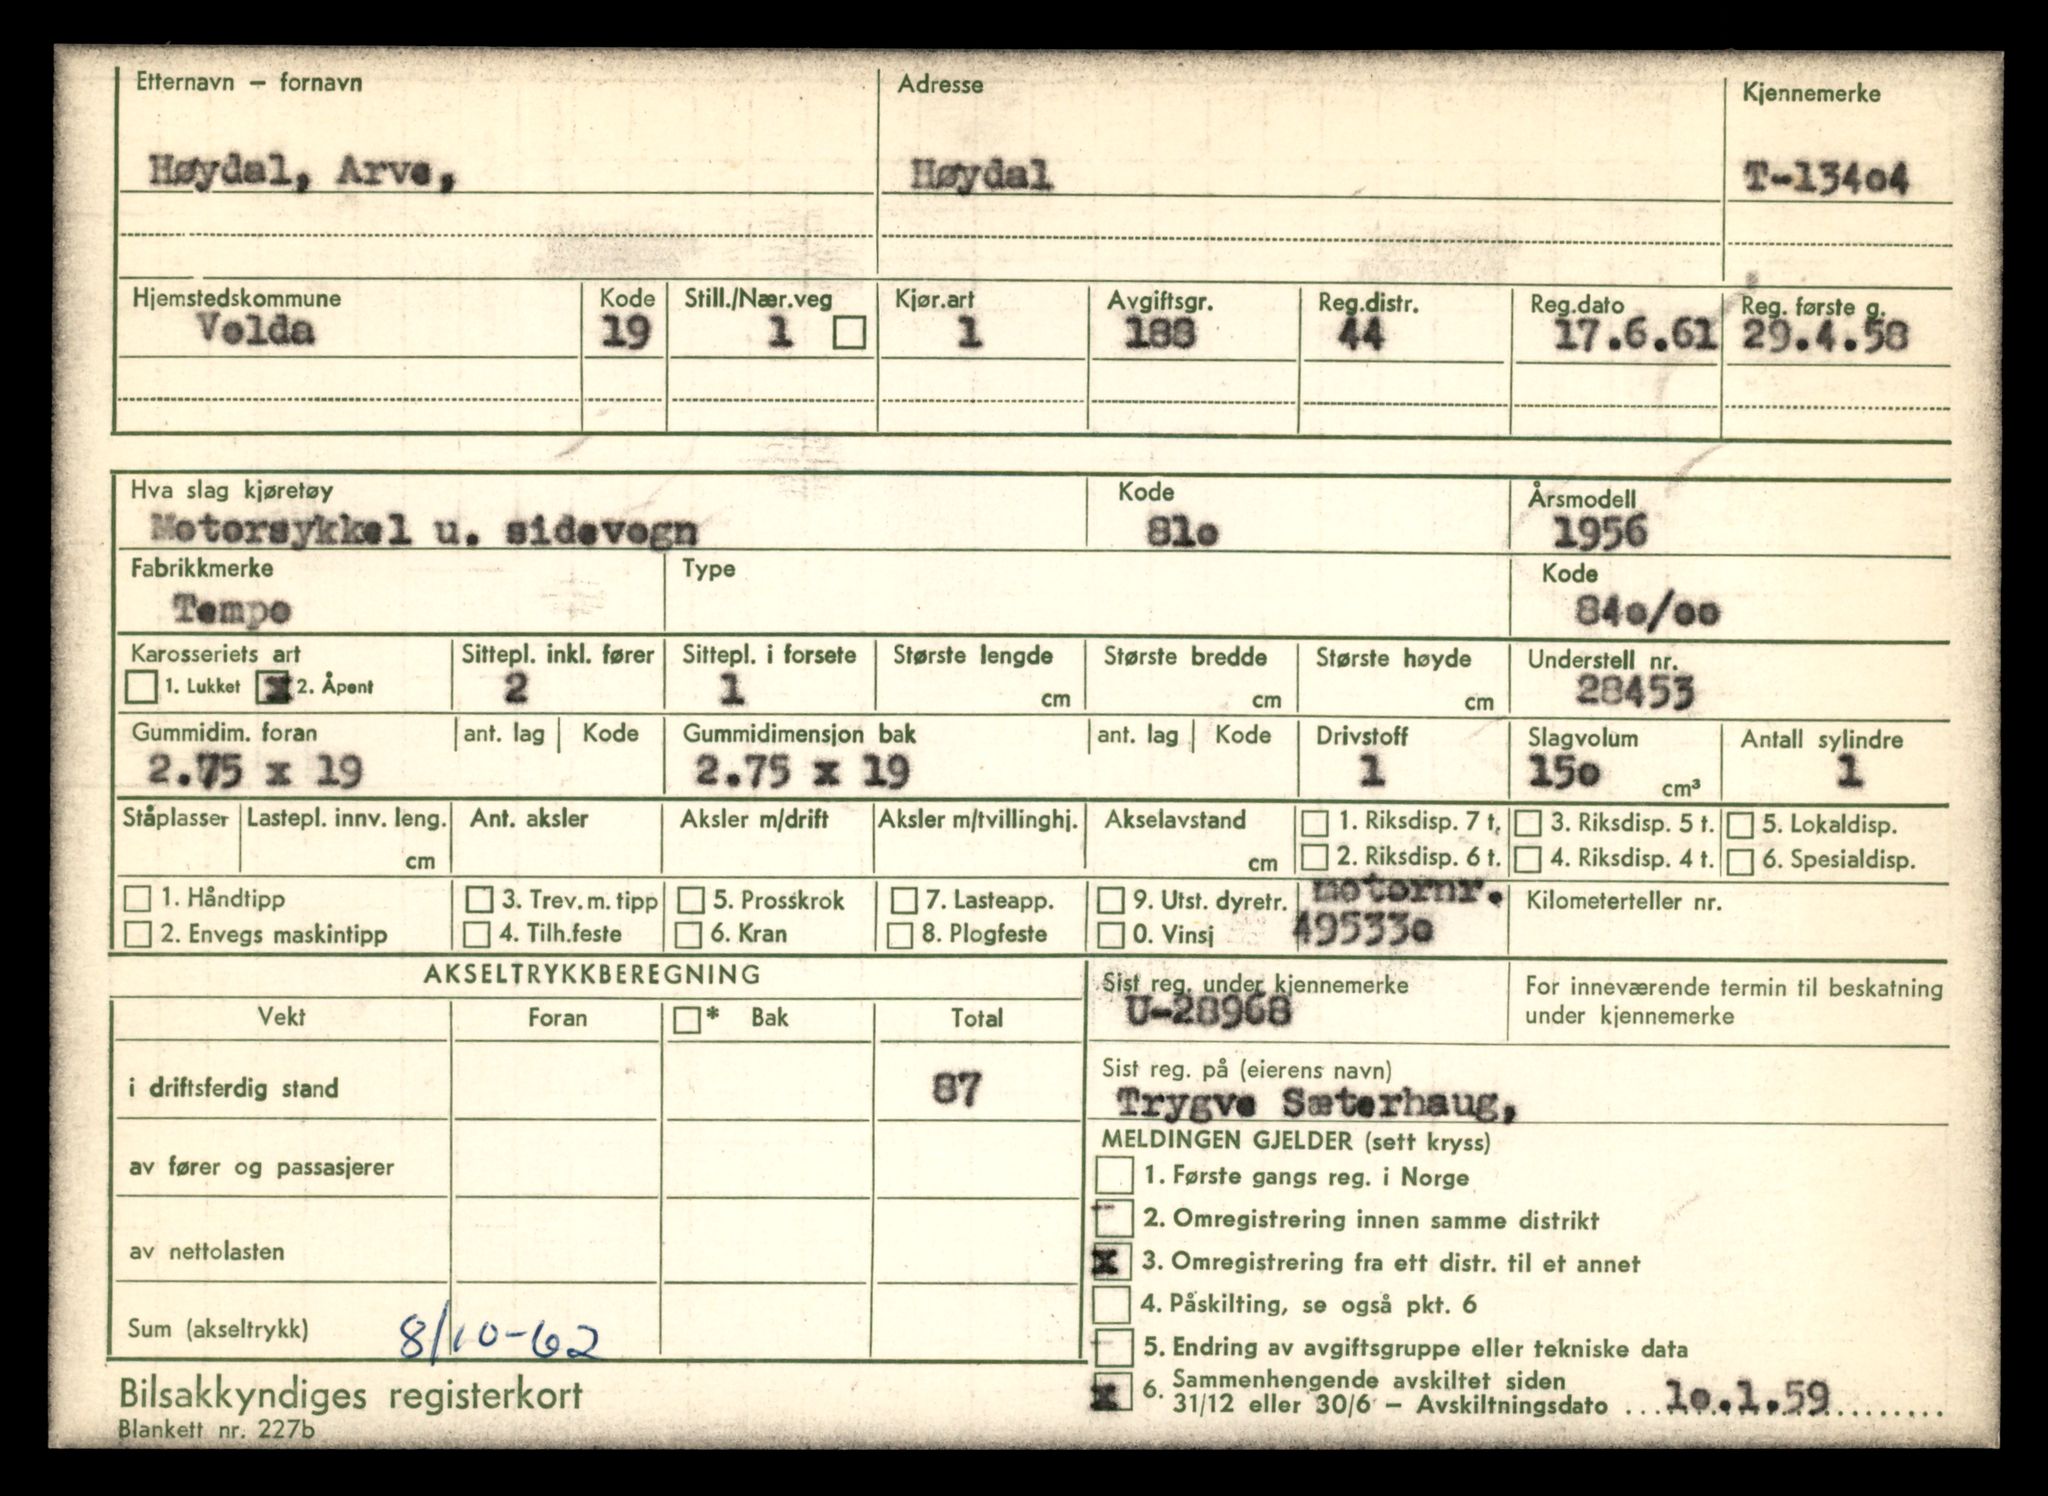 Etternavn – fornavn Adresse Kjennemerke
Høydal, Arve, Høydal T-13404
Hjemstedskommune Kode Still./Nær.veg Kjør.art Avgiftsgr. Reg.distr. Reg.dato Reg. første g.
Volda 19 1 1 188 44 17.6.61 29.4.58
Hva slag kjøretøy Kode Årsmodell
Motorsykkel u. sidevogn 810 1956
Fabrikkmerke Type Kode
Tempo 840/00
Karosseriets art Sittepl. inkl. fører Sittepl. i forsete Største lengde Største bredde Største høyde Understell nr.
1. Lukket x 2. Åpent 2 1 cm cm cm 28453
Gummidim. foran ant. lag Kode Gummidimensjon bak ant. lag Kode Drivstoff Slagvolum Antall sylindre
2.75 x 19 2.75 x 19 1 150 cm³ 1
Ståplasser Lastepl. innv. leng. Ant. aksler Aksler m/drift Aksler m/tvillinghj. Akselavstand 1. Riksdisp. 7 t. 3. Riksdisp. 5 t. 5. Lokaldisp.
cm cm 2. Riksdisp. 6 t. 4. Riksdisp. 4 t. 6. Spesialdisp.
1. Håndtipp 3. Trev. m. tipp 5. Prosskrok 7. Lasteapp. 9. Utst. dyretr. motornr. Kilometerteller nr.
2. Envegs maskintipp 4. Tilh.feste 6. Kran 8. Plogfeste 0. Vinsj 495330
AKSELTRYKKBEREGNING
Vekt Foran * Bak Total
i driftsferdig stand 87
av fører og passasjerer
av nettolasten
Sum (akseltrykk) 8/10-62
Sist reg. under kjennemerke For inneværende termin til beskatning
U-28968 under kjennemerke
Sist reg. på (eierens navn)
Trygve Sæterhaug,
MELDINGEN GJELDER (sett kryss)
1. Første gangs reg. i Norge
2. Omregistrering innen samme distrikt
x 3. Omregistrering fra ett distr. til et annet
4. Påskilting, se også pkt. 6
5. Endring av avgiftsgruppe eller tekniske data
x 6. Sammenhengende avskiltet siden
31/12 eller 30/6 – Avskiltningsdato 10.1.59
Bilsakkyndiges registerkort
Blankett nr. 227b